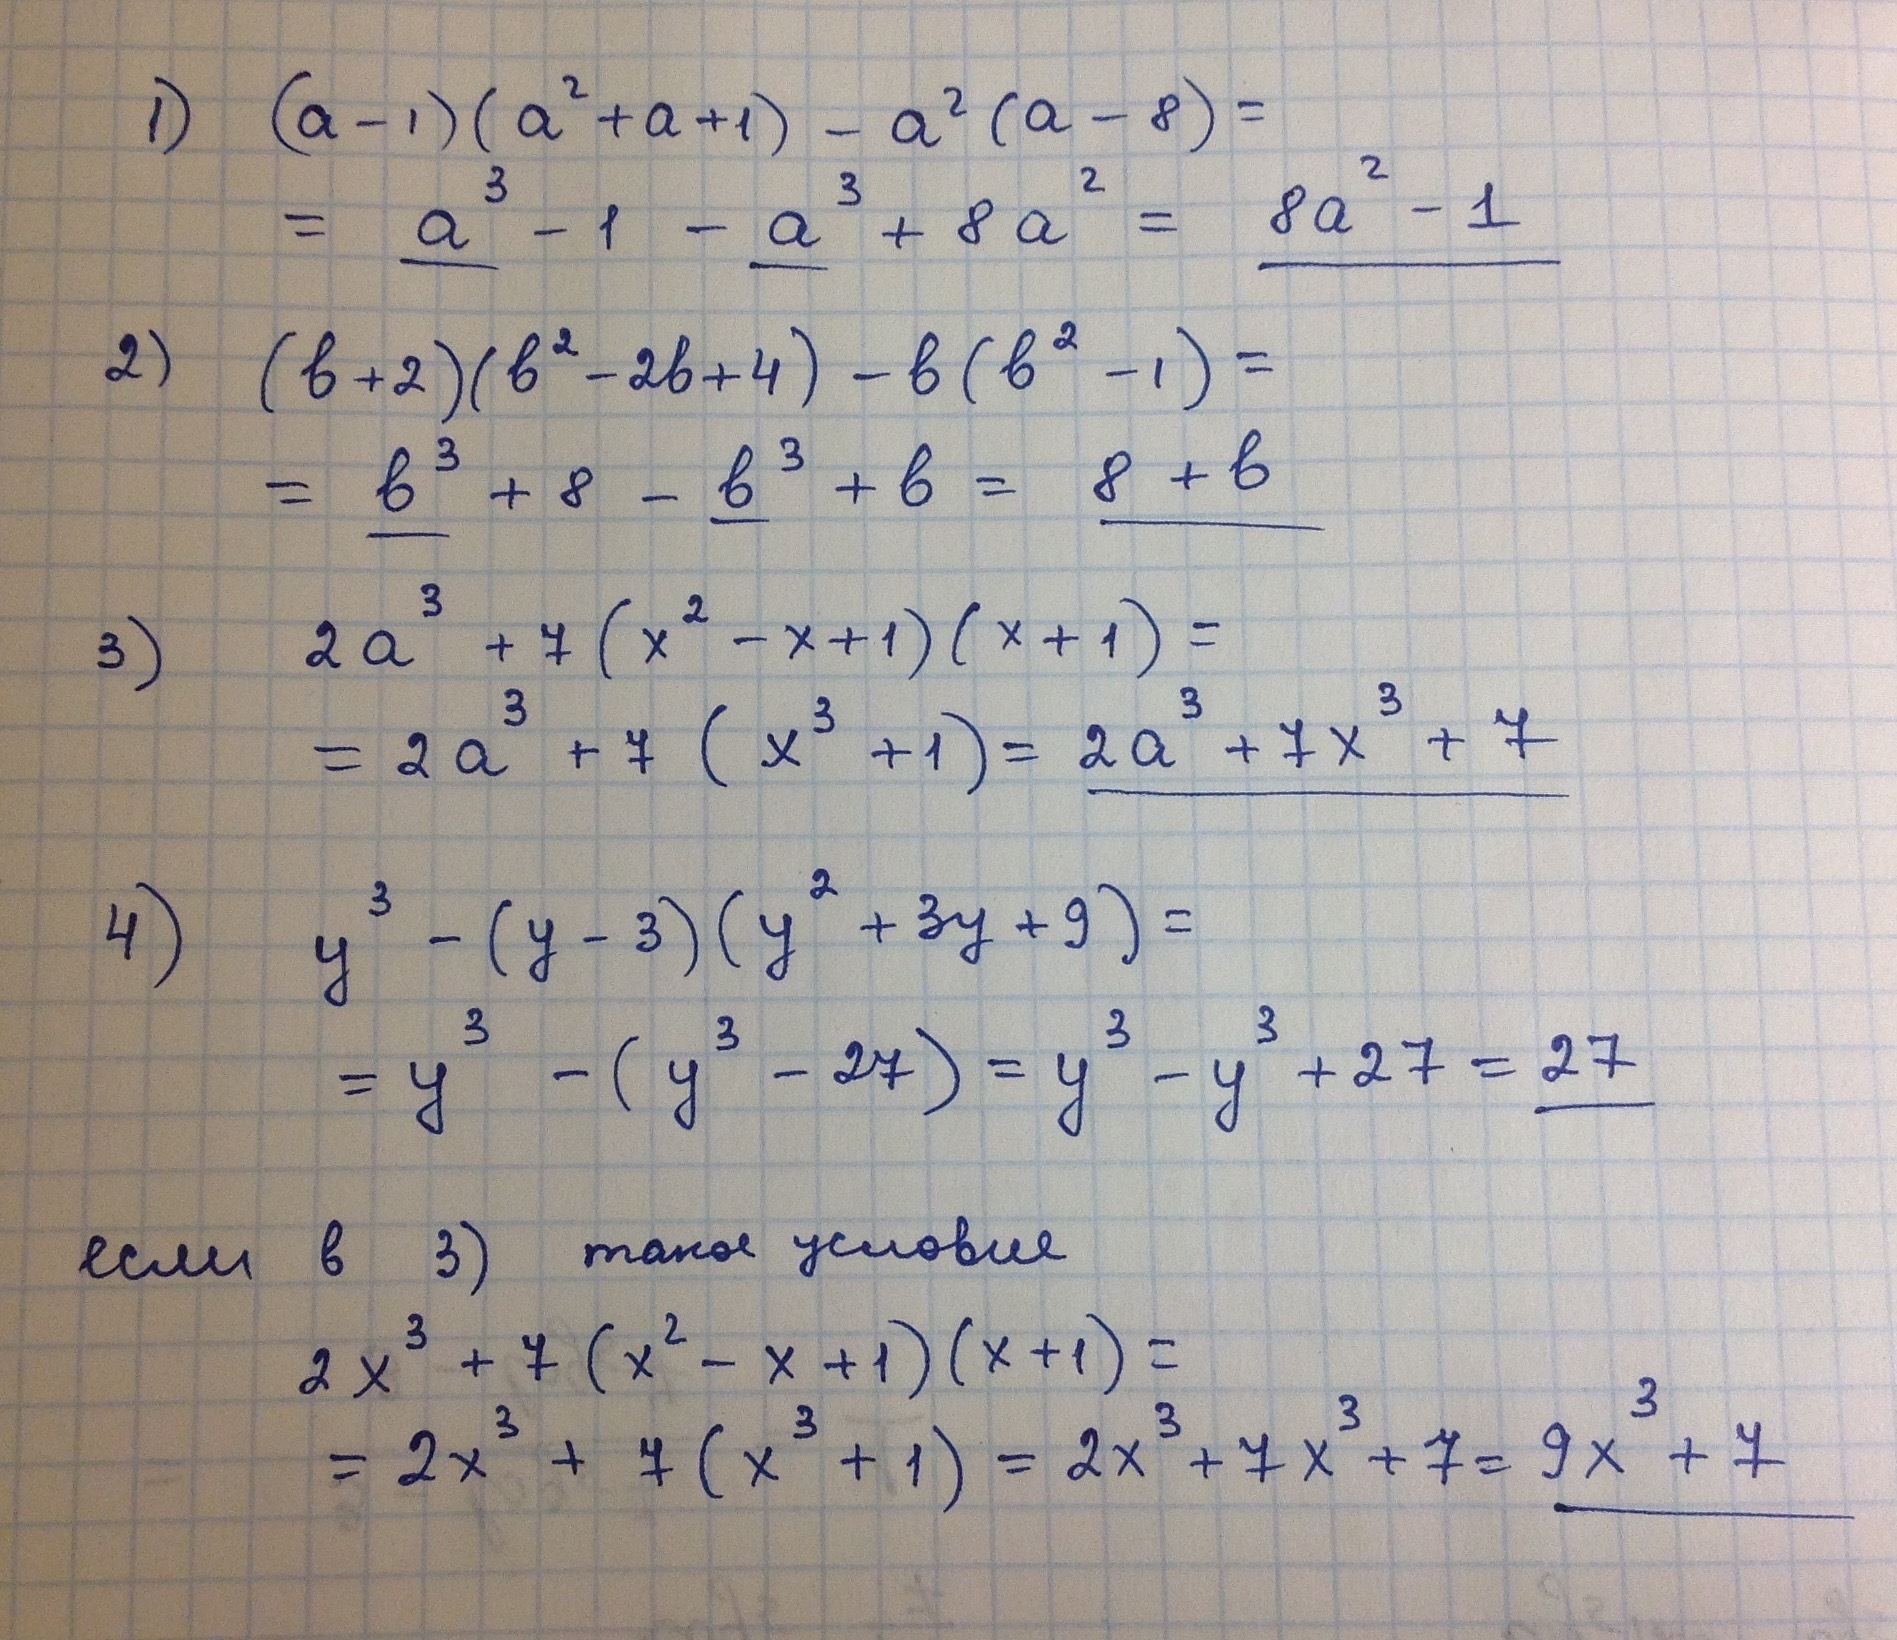 1) (a-1)(a²+a+1) - a²(a-8) =
= a³ - 1 - a³ + 8a² = 8a² - 1
2) (b+2)(b²-2b+4) - b(b²-1) =
= b³ + 8 - b³ + b = 8 + b
3) 2a³ + 7(x²-x+1)(x+1) =
= 2a³ + 7(x³+1) = 2a³ + 7x³ + 7
4) y³ - (y-3)(y²+3y+9) =
= y³ - (y³-27) = y³ - y³ + 27 = 27
если в 3) такое условие
2x³ + 7(x²-x+1)(x+1) =
= 2x³ + 7(x³+1) = 2x³ + 7x³ + 7 = 9x³ + 7